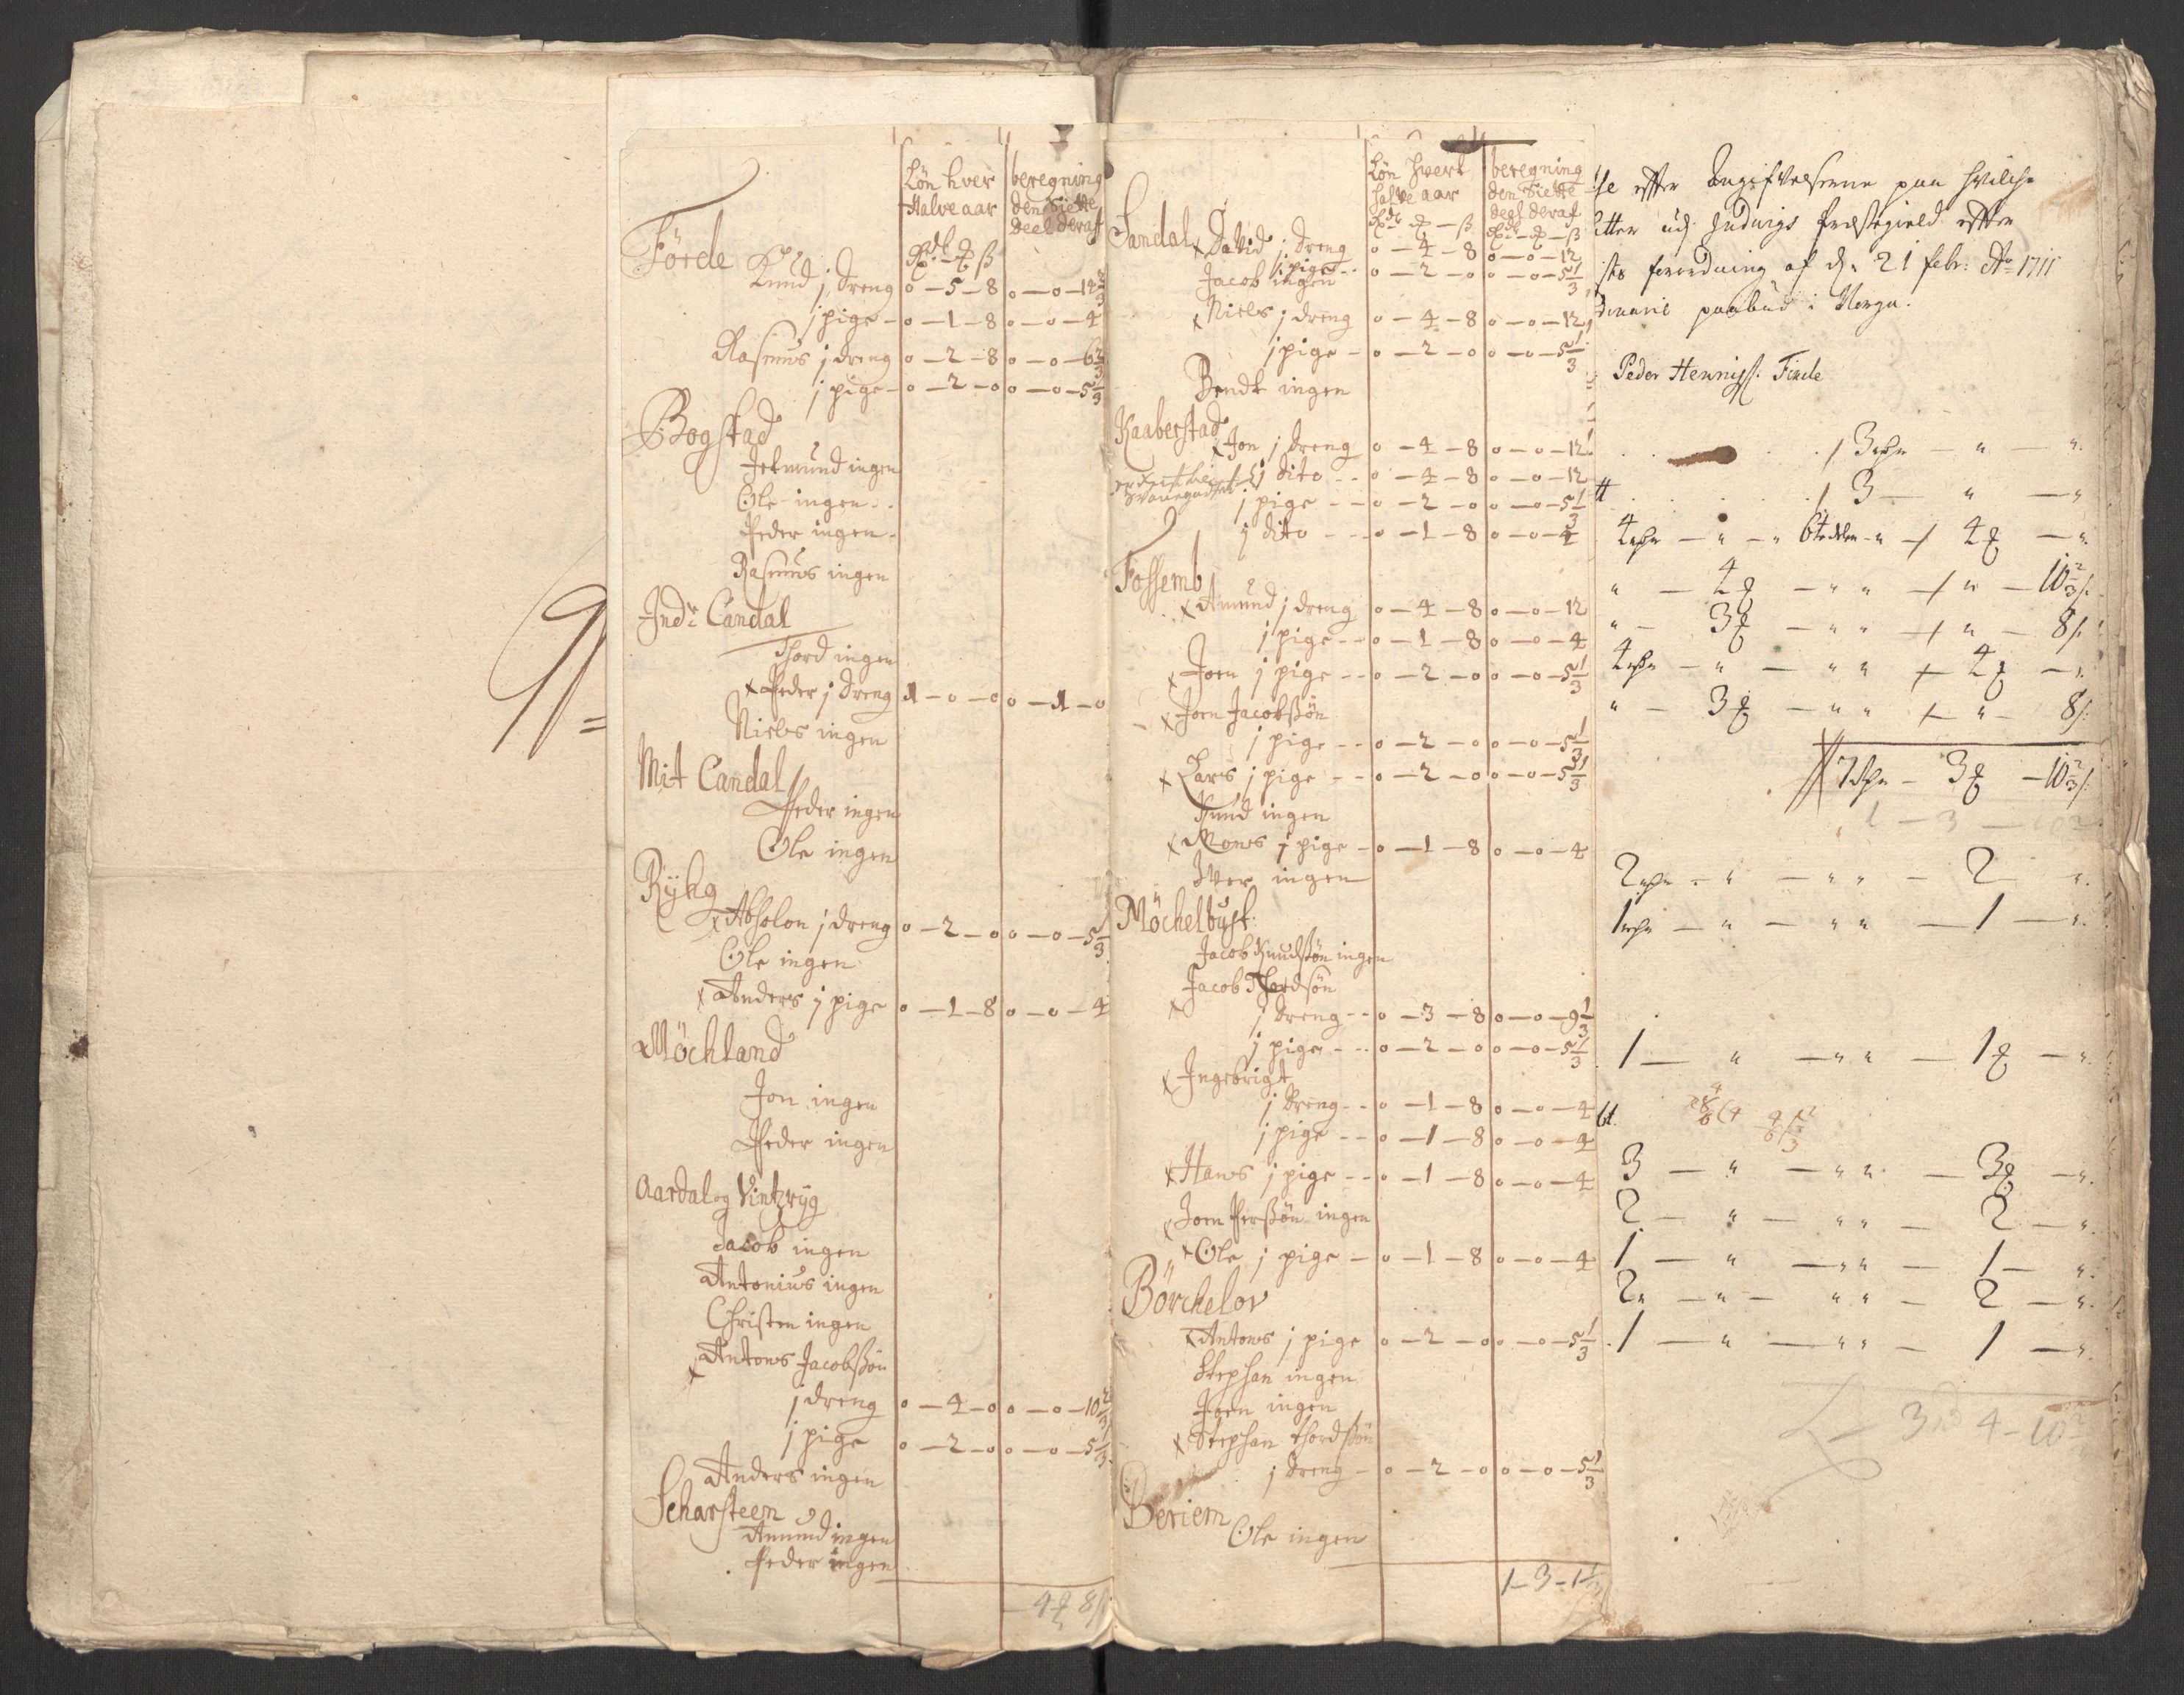 Lön hver | beregning
Halve aar | den Siette
deel deraf
Förde
Rdl - ₻ ß
Knud j dreng 0 — 5 — 8 0 — 0 — 14 2/3
j pige — 0 — 1 — 8 0 — 0 — 4
Rasmus j dreng 0 — 2 — 8 0 — 0 — 6 2/3
j pige — 0 — 2 — 0 0 — 0 — 5 1/3
Bogstad
Jetmund ingen
Ole ingen
Peder ingen
Rasmus ingen
Indr Candal
Thord ingen
x Peder j dreng 1 — 0 — 0 0 — 1 — 0
Niels ingen
Mit Candal
Peder ingen
Ole ingen
Rÿhg
x Absolon j dreng 0 — 2 — 0 0 — 0 — 5 1/3
Ole ingen
x Anders j pige 0 — 1 — 8 0 — 0 — 4
Möchland
Jon ingen
Peder ingen
Aardal og Vintzryg
Jacob ingen
Antonius ingen
Christen ingen
x Antons Jacobßön
j dreng 0 — 4 — 0 0 — 0 — 10 2/3
j pige 0 — 2 — 0 0 — 0 — 5 1/3
Anders ingen
Scharsteen
Amund ingen
Peder ingen
4 ₻ 8 ß
Lön hvert | beregning
halve aar | den Siette
deel deraf
Rdl ₻ — ß | Rdl — ₻ — ß
Sandal x David j dreng 0 — 4 — 8 0 — 0 — 12
j pige 0 — 2 — 0 0 — 0 — 5 1/3
Jacob ingen
x Niels j dreng 0 — 4 — 8 0 — 0 — 12
j pige — 0 — 2 — 0 0 — 0 — 5 1/3
Bendt ingen
Raaberstad
x Jon j dreng 0 — 4 — 8 0 — 0 — 12
j dito 0 — 4 — 8 0 — 0 — 12
j pige 0 — 2 — 0 0 — 0 — 5 1/3
j dito 0 — 1 — 8 0 — 0 — 4
Fossemb
x Amund j dreng 0 — 4 — 8 0 — 0 — 12
j pige 0 — 1 — 8 0 — 0 — 4
x Joen j pige 0 — 2 — 0 0 — 0 — 5 1/3
x Joen Jacobßön
j pige 0 — 2 — 0 0 — 0 — 5 1/3
x Lars j pige 0 — 2 — 0 0 — 0 — 5 1/3
Knud ingen
x Mons j pige 0 — 1 — 8 0 — 0 — 4
Iver ingen
Möchelbust
Jacob Knudßön ingen
Jacob Thordsön
x j dreng 0 — 3 — 8 0 — 0 — 9 1/3
j pige 0 — 2 — 0 0 — 0 — 5 1/3
x Ingebrigt
j dreng 0 — 1 — 8 0 — 0 — 4
j pige 0 — 1 — 8 0 — 0 — 4
x Hans j pige 0 — 1 — 8 0 — 0 — 4
x Joen Perßön ingen
x Ole j pige 0 — 1 — 8 0 — 0 — 4
Börchelov
x Antons j pige 0 — 2 — 0 0 — 0 — 5 1/3
Stephan ingen
Joen ingen
x Stephan thordßön
j dreng 0 — 2 — 0 0 — 0 — 5 1/3
Beriem
Ole ingen
1 — 3 — 1 1/3
effter Angifvelserne paa hvilche
udj Indvigs Præstegield effter
forordning af d: 21 febr: Ao 1711
paabud i Norge.
Peder Hennigs: Finde
3
3
4 — " — " 6te delen " — 4 ₻ — "
" — 4 ₻ — " " — " — 10 2/3 ß
" — 3 ₻ — " " — " — 8 ß
4 — " — " " — 4 ₻ — "
" — 3 ₻ — " " — " — 8 ß
7 — 3 ₻ — 10 2/3 ß
2 — " — " " — 2 — "
1 — " — " " — 1 — "
1 — " — " " — 1 ₻ — "
3 — " — " " — 3 ₻ — "
2 — " — " " — 2 — "
1 — " — " " — 1 — "
2 — " — " " — 2 — "
1 — " — " " — 1 — "
3 4 — 10 2/3